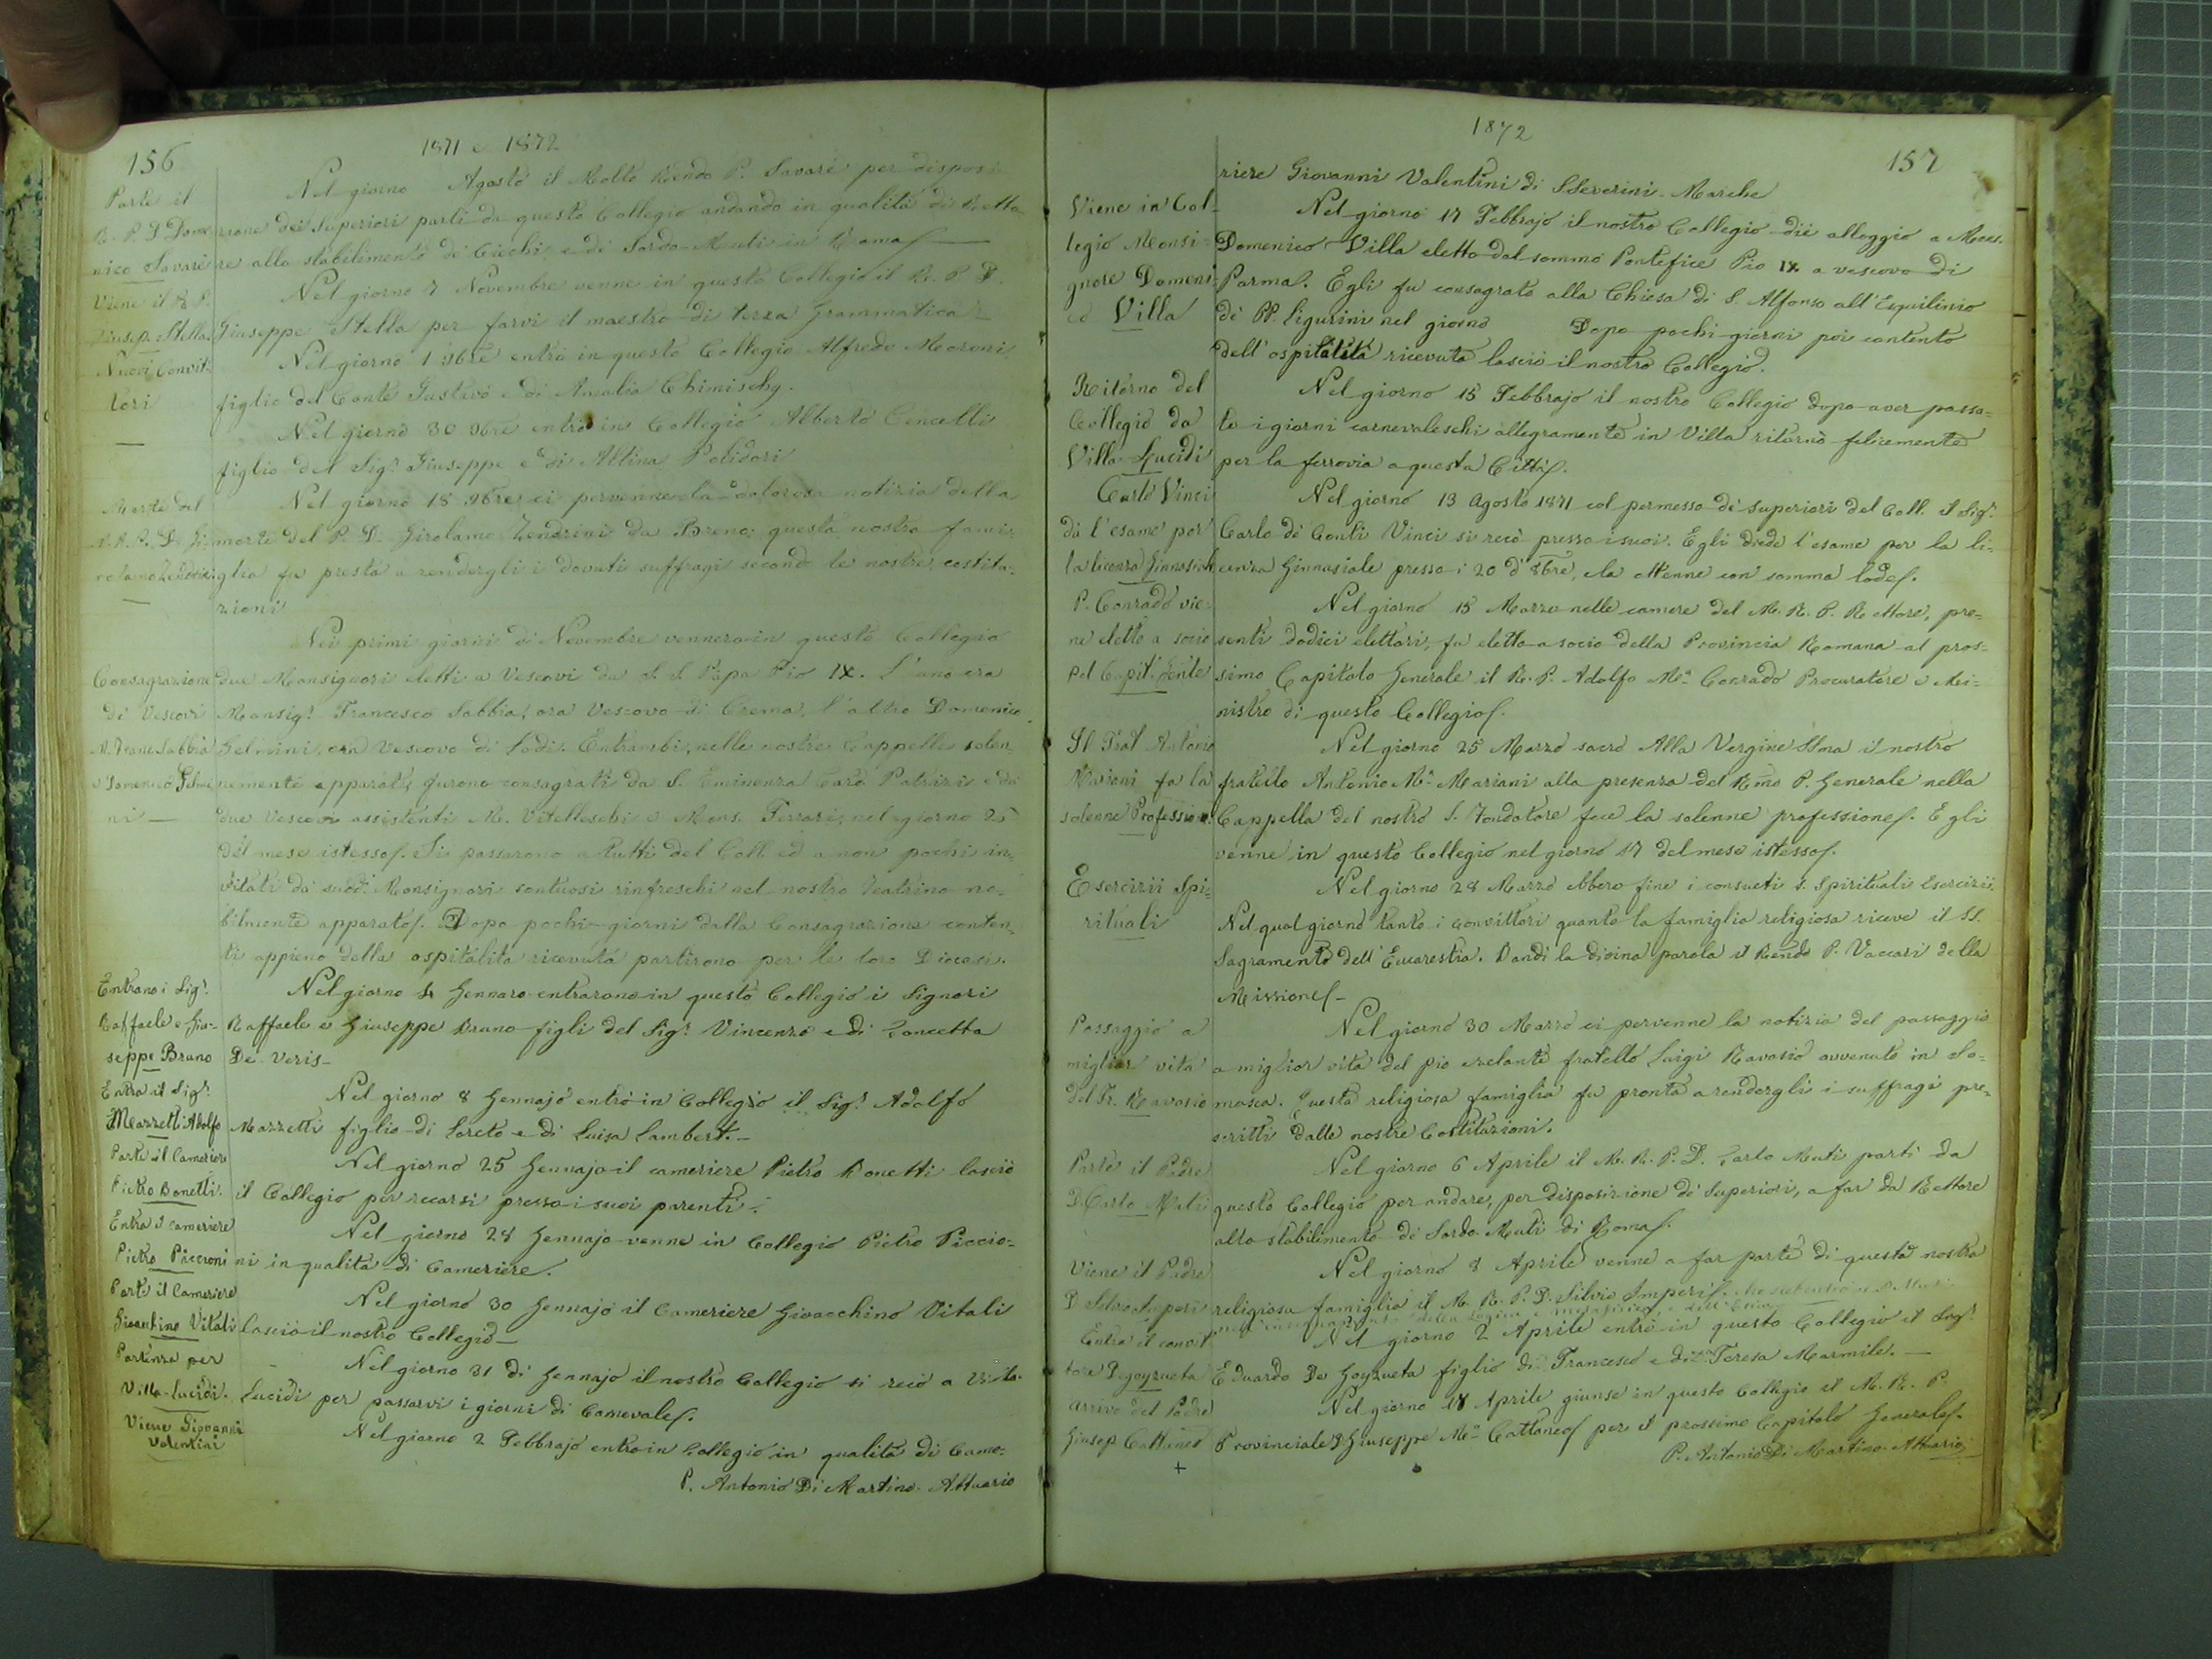 156
1871 e 1872
Parte il
R. P. D. Dome-
nico Savarè
Nel giorno Agosto il Molto Rendo P. Savarè per disposi-
zione dei Superiori partì da questo Collegio andando in qualità di Retto-
re allo stabilimento di Ciechi, e di Sordo-Muti in Roma
Viene il R. P.
Giusep. Stella
Nel giorno 7 Novembre venne in questo Collegio il R. P. D.
Giuseppe Stella per farvi il maestro di terza Grammatica
Nuovi Convit-
tori
Nel giorno 1 9bre entrò in questo Collegio Alfredo Moroni
figlio del Conte Gustavo e di Amalia Chimischy.
Nel giorno 30 9bre entrò in Collegio Alberto Cencelli
figlio del Sigr Giuseppe e di Altina Polidori
Morte del
M. R. P. D. Gi-
rolamo Zendrini
Nel giorno 18 9bre ci pervenne la dolorosa notizia della
morte del P. D. Girolamo Zendrini da Breno: questa nostra fami-
glia fu presta a rendergli i dovuti suffragi secondo le nostre costitu-
zioni
Nei primi giorni di Novembre vennero in questo Collegio
Consagrazione
di Vescovi
M. Franc. Sabbia
e Domenico Gelmi-
ni
due Monsignori eletti a Vescovi da S. S. Papa Pio IX. L'uno era
Monsigr Francesco Sabbia, ora Vescovo di Crema, l'altro Domenico
Gelmini, ora Vescovo di Lodi. Entrambi, nelle nostre Cappelle solen-
nemente apparate, furono consagrati da S. Eminenza Card Patrizi e da
due Vescovi assistenti M. Vitelleschi e Mons. Ferrari, nel giorno 25
del mese istesso. Si passarono a tutti del Coll. ed a non pochi in-
vitati da' sudd.i Monsignori sontuosi rinfreschi nel nostro teatrino no-
bilmente apparato. Dopo pochi giorni dalla Consagrazione conten-
ti appieno della ospitalità ricevuta partirono per le loro Diocesi.
Entrano i Sigr.
Raffaele e Giu-
seppe Bruno
Nel giorno 4 Gennaro entrarono in questo Collegio i Signori
Raffaele e Giuseppe Bruno figli del Sigr Vincenzo e di Concetta
De Veris
Entra il Sigr.
Mazzetti Adolfo
Nel giorno 8 Gennajo entrò in Collegio il Sigr Adolfo
Mazzetti figlio di Loreto e di Luisa Lambert.
Parte il Cameriere
Pietro Bonetti.
Nel giorno 25 Gennajo il cameriere Pietro Bonetti lasciò
il Collegio per recarsi presso i suoi parenti.
Entra il cameriere
Pietro Piccioni
Nel giorno 28 Gennajo venne in Collegio Pietro Piccio-
ni in qualità di Cameriere.
Parte il Cameriere
Gioachino Vitali
Nel giorno 30 Gennajo il Cameriere Gioacchino Vitali
lasciò il nostro Collegio
Partenza per
Villa-Lucidi.
Nel giorno 31 di Gennajo il nostro Collegio si recò a Villa-
Lucidi per passarvi i giorni di Carnevale.
Viene Giovanni
Valentini
Nel giorno 2 Febbrajo entrò in Collegio in qualità di Came-
P. Antonio Di Martino Attuario
1872
157
riere Giovanni Valentini di S. Severini-Marche
Viene in Col-
legio Monsi-
gnore Domeni-
co Villa
Nel giorno 17 Febbrajo il nostro Collegio diè alloggio a Mons.
Domenico Villa eletto dal sommo Pontefice Pio IX a vescovo di
Parma. Egli fu consagrato alla Chiesa di S. Alfonso all'Esquilinio
de' PP. Ligurini nel giorno Dopo pochi giorni poi contento
dell'ospitalità ricevuta lasciò il nostro Collegio.
Ritorno del
Collegio da
Villa-Lucidi
Nel giorno 15 Febbrajo il nostro Collegio dopo aver passa-
to i giorni carnevaleschi allegramente in Villa ritornò felicemente
per la ferrovia a questa Città.
Carlo Vinci
dà l'esame per
la licenza Ginnasiale
Nel giorno 13 Agosto 1871 col permesso de' Superiori del Coll. il Sigr.
Carlo de' Conti Vinci si recò presso i suoi. Egli diede l'esame per la li-
cenza Ginnasiale presso i 20 d'8bre, e la ottenne con somma lode.
P. Conrado vie-
ne eletto a socio
pel Capit. Gēnle
Nel giorno 15 Marzo nelle camere del M. R. P. Rettore, pre-
senti dodici elettori, fu eletto a socio della Provincia Romana al pros-
simo Capitolo Generale il R. P. Adolfo Ma Conrado Procuratore e Mi-
nistro di questo Collegio.
Il Frat Antonio
Mariani fa la
solenne Professione.
Nel giorno 25 Marzo sacro Alla Vergine SSma il nostro
fratello Antonio Ma Mariani alla presenza del Rmo P. Generale nella
Cappella del nostro S. Fondatore fece la solenne professione. Egli
venne in questo Collegio nel giorno 17 del mese istesso.
Esercizii Spi-
rituali
Nel giorno 28 Marzo ebbero fine i consueti S. Spirituali Esercizii.
Nel qual giorno tanto i convittori quanto la famiglia religiosa riceve il SS.
Sagramento dell'Eucarestia. Bandì la divina parola il Rendo P. Vaccari della
Missione
Passaggio a
miglior vita
del Fr. Ravasio
Nel giorno 30 Marzo ci pervenne la notizia del passaggio
a miglior vita del pio e zelante fratello Luigi Ravasio avvenuto in So-
masca. Questa religiosa famiglia fu pronta a rendergli i suffragi pre-
scritti dalle nostre Costituzioni.
Parte il Padre
D. Carlo Muti
Nel giorno 6 Aprile il M. R. P. D. Carlo Muti partì da
questo Collegio per andare, per disposizione de' Superiori, a far da Rettore
allo stabilimento de' Sordo-Muti di Roma.
Viene il Padre
D. Silvio Imperi
Nel giorno 8 Aprile venne a far parte di questa nostra
religiosa famiglia il M. R. P. D. Silvio Imperi
nell'insegnamento della Logica e metafisica e dell'Etica
Entra il convit-
tore Degoyzueta
Nel giorno 2 Aprile entrò in questo Collegio il Sigr
Eduardo De Goyzueta figlio di Francesco e di Teresa Marmile.
Arrivo del Padre
Giusep Cattaneo
Nel giorno 18 Aprile giunse in questo Collegio il M. R. P.
Provinciale D. Giuseppe Ma Cattaneo per il prossimo Capitolo Generale.
P. Antonio Di Martino Attuario